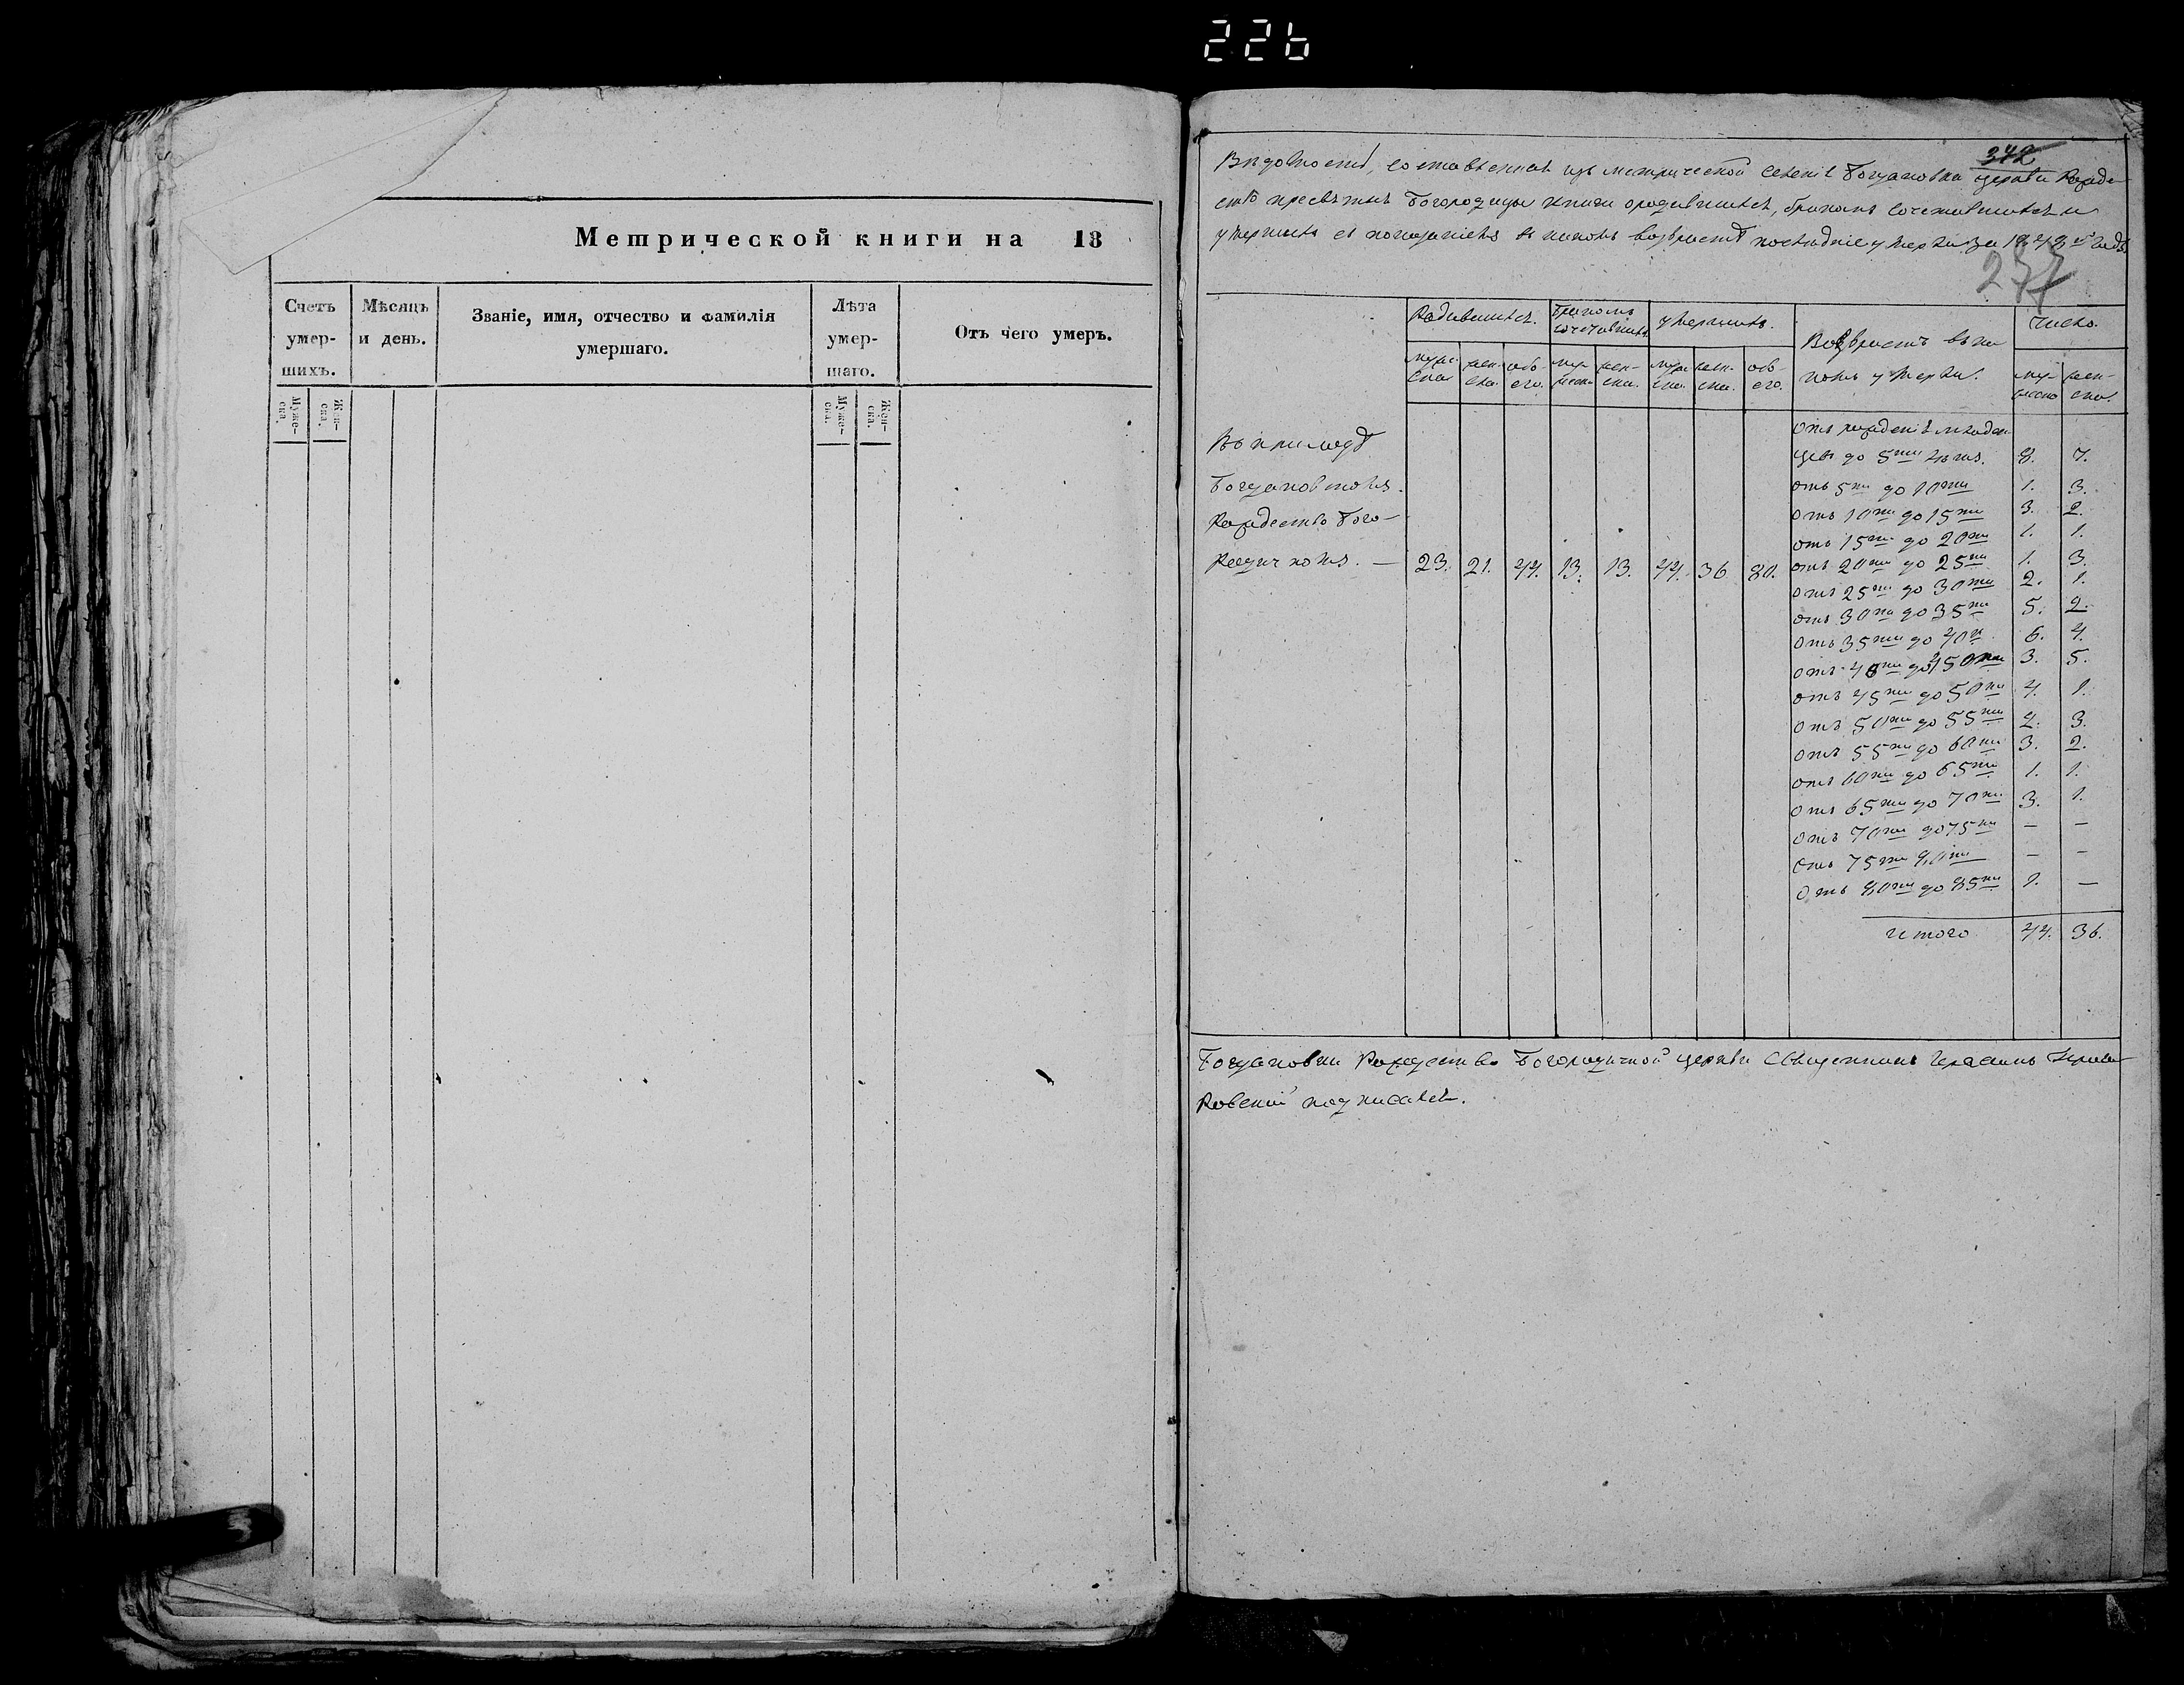 226
Метрической книги на 18
Счетъ умер-шихъ.
Мѣсяцъ и день.
Званіе, имя, отчество и фамилія умершаго.
Лѣта умер-шаго.
Отъ чего умеръ.
Муже-ска.
Жен-ска.
Муже-ска.
Жен-ска.
342
Вѣдомость, составленная изъ метрической селенія Богдановка церкви Рожде-
ство пресвятыя Богородицы книги о родившихся, бракомъ сочетавшихся и
умершихъ съ показаніемъ въ какомъ возврастѣ послѣдніе умерли за 1848й годъ
237
Родившихся.
Бракомъ сочетавшихся
умершихъ.
Возврастъ въ ка-
комъ умерли.
Число.
муже-ска
жен-ска.
обо-его.
му-жеска
жен-ска.
муже-ска.
жен-ска.
обо-его.
му-жеска
жен-ска.
Въ приходѣ
Богдановскомъ.
Рождество Бого-
Родичномъ. — 23. 21. 44. 13. 13. 44. 36 80.
отъ рожденія младен-
цевъ до 5ти лѣтъ. 8. 7.
отъ 5ти до 10ти 1. 3.
отъ 10ти до 15ти 3. 2.
отъ 15ти до 20ти 1. 1.
отъ 20ти до 25ти 1. 3.
отъ 25ти до 30ти 2. 1.
отъ 30ти до 35ти 5. 2.
отъ 35ти до 40и 6. 4.
отъ 40ти до 3. 5.
отъ 45ти до 50ти 4. 1.
отъ 50ти до 55ти 2. 3.
отъ 55ти до 60ти 3. 2.
отъ 60ти до 65ти 1. 1.
отъ 65ти до 70ти 3. 1.
отъ 70ти до 75ти — —
отъ 75ти 80ти — —
отъ 80ти до 85ти 1. —
итого 44. 36.
Богдановки Рождество Богородичной церкви Священникъ Герасимъ
подписался.